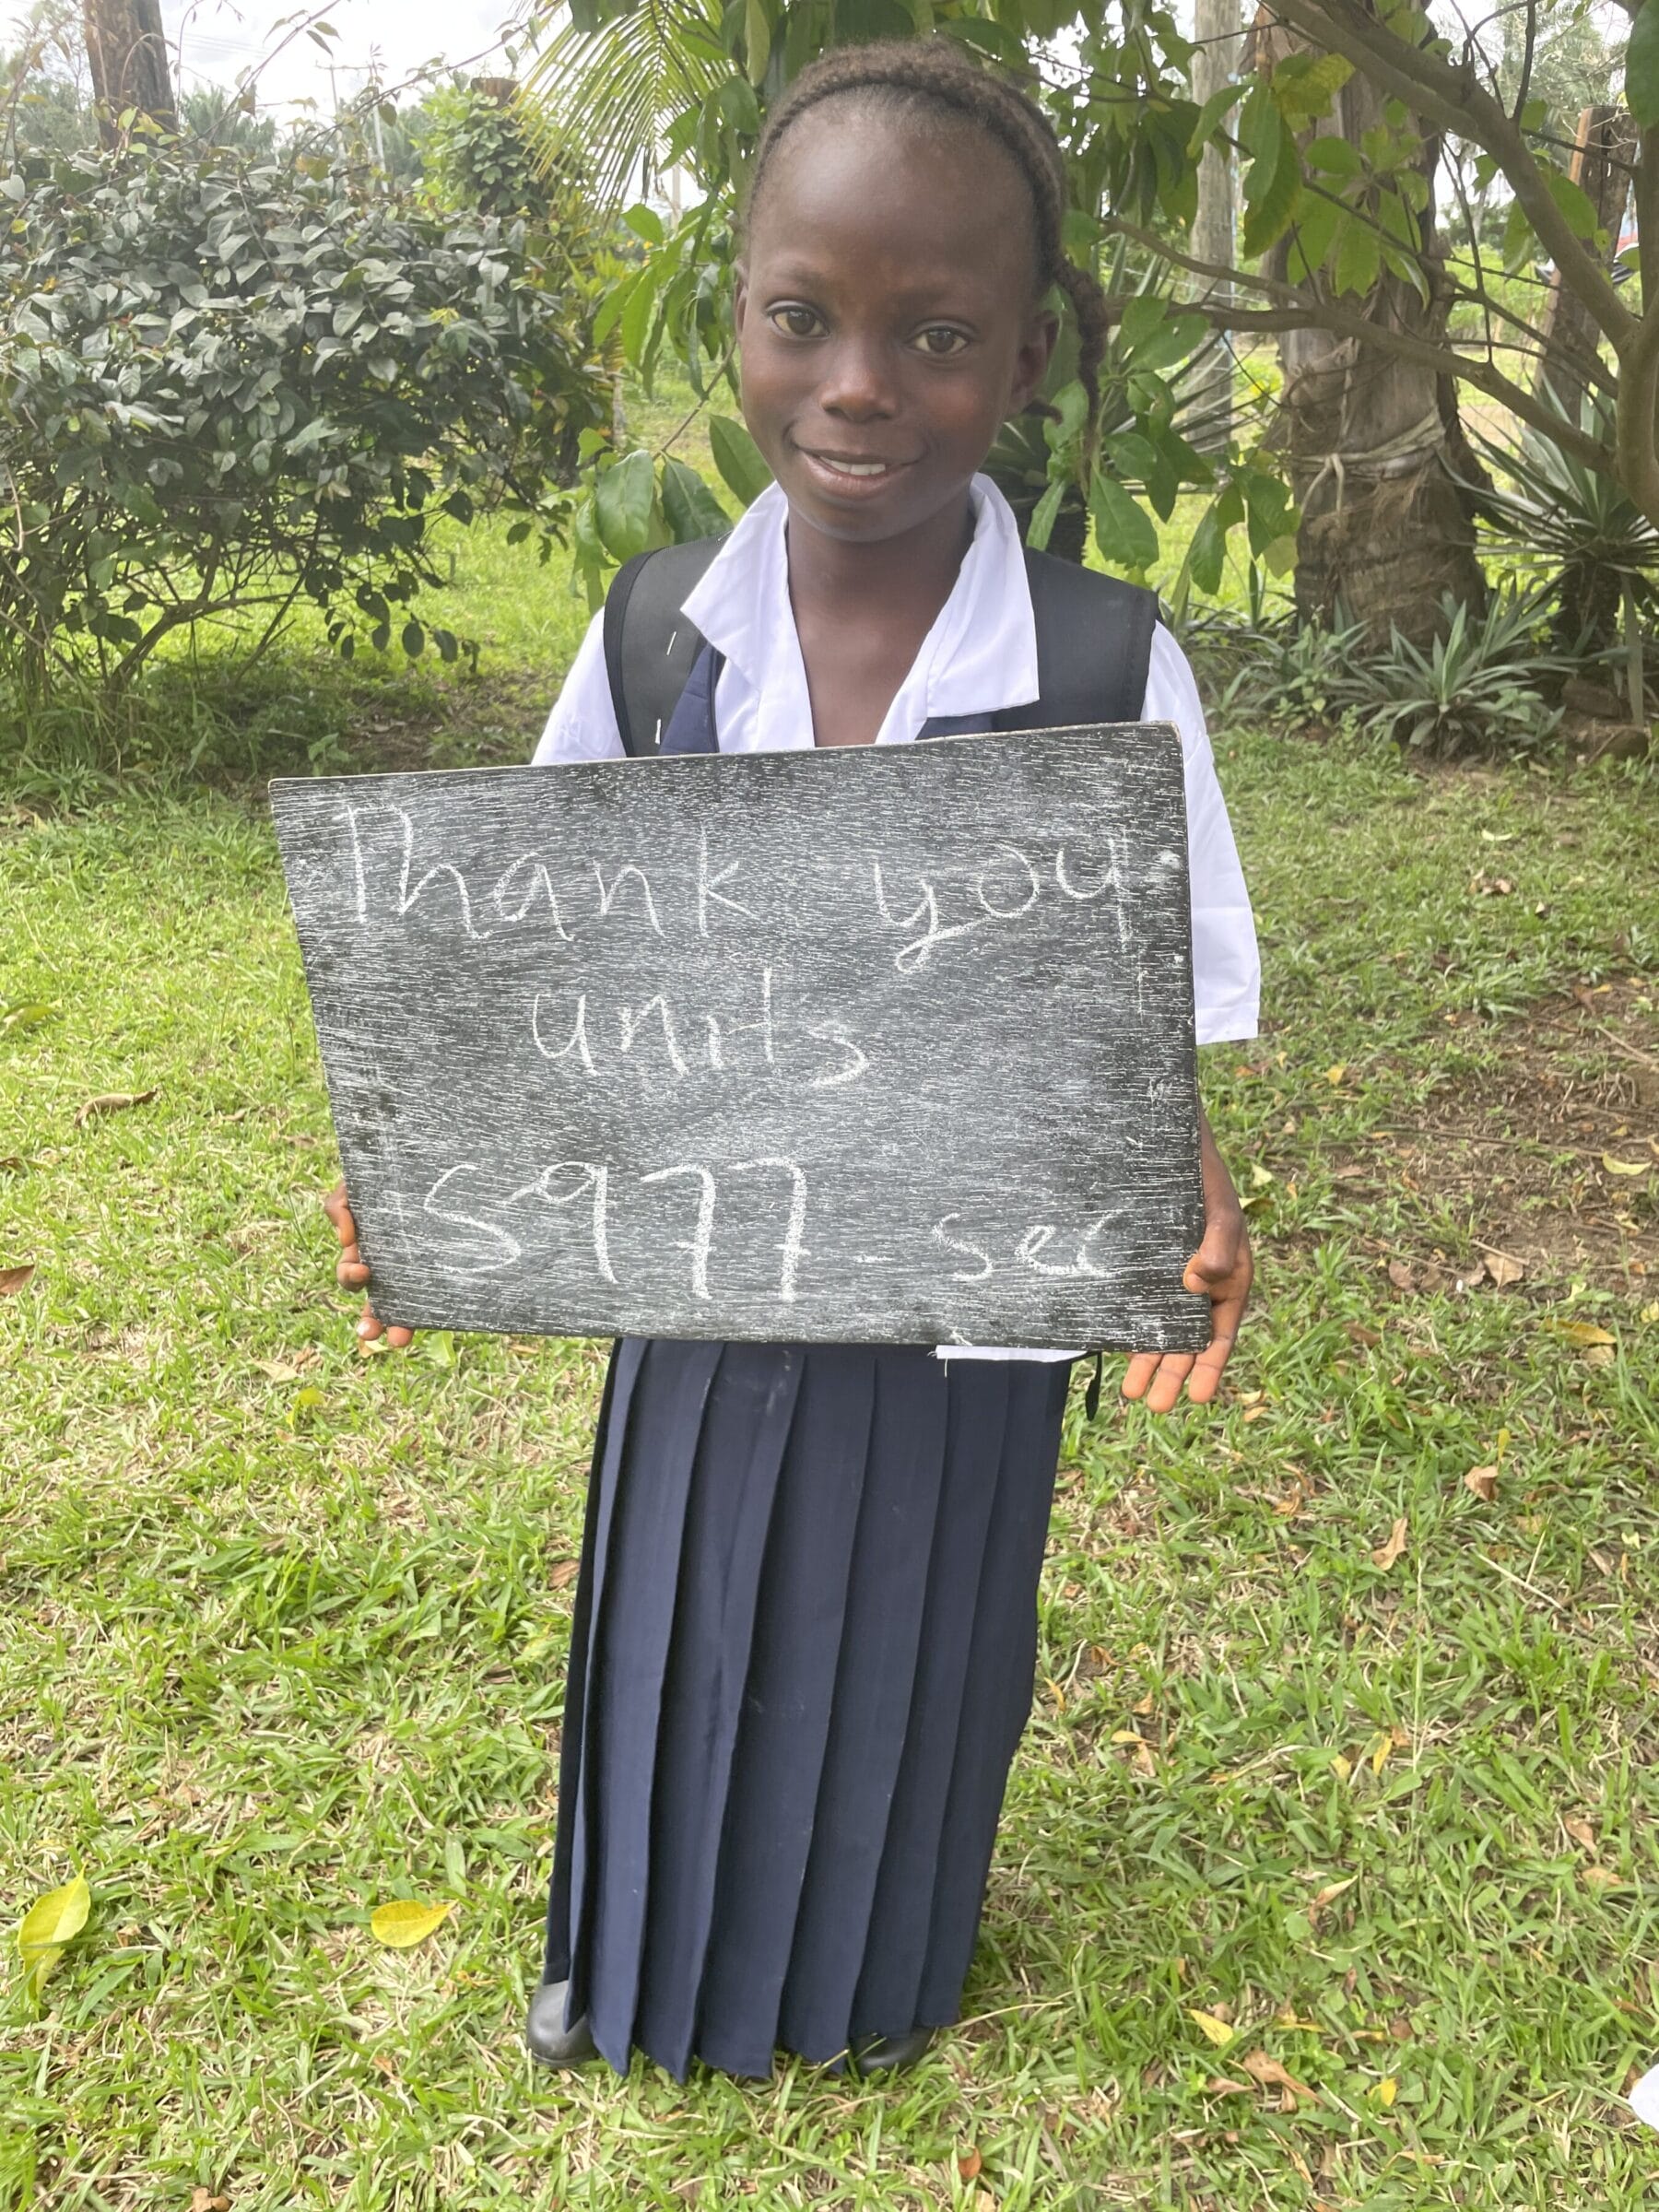 Thank you
units
S977-sec